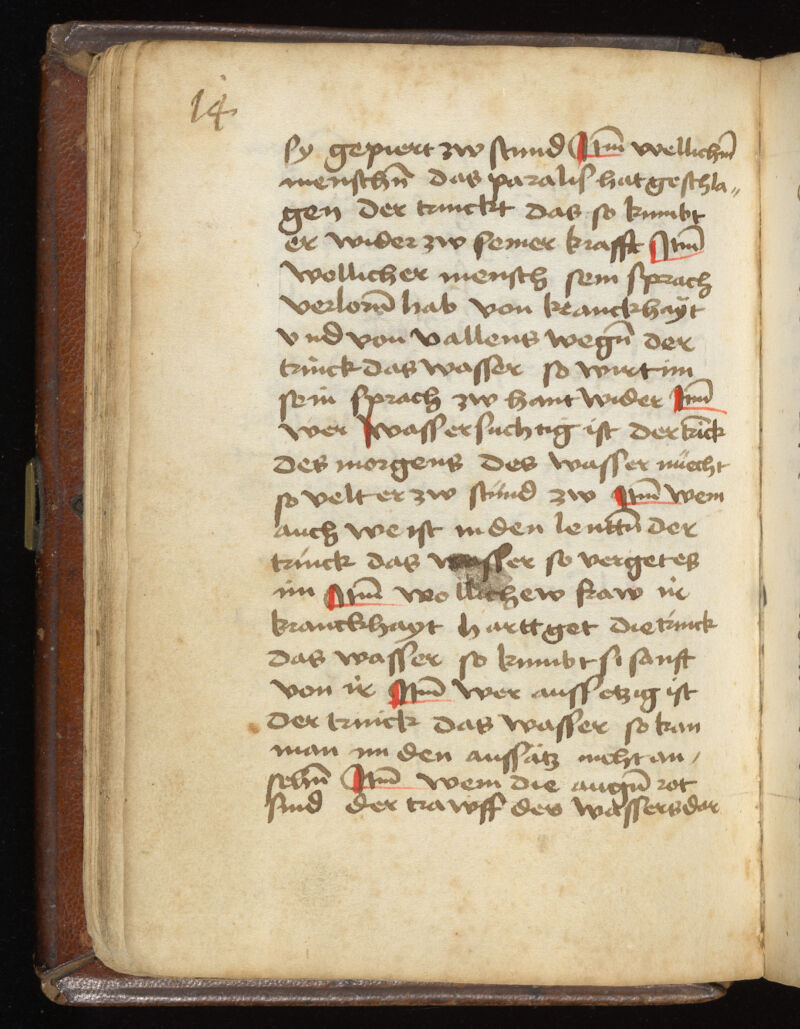 14
sy gepiert zw stund Itm̄ wellichn̄
menschn̄ das paralis hat geschla„
gen der trinckt das so kumbt
er wider zw seiner krafft Itm̄
wollicher mensch sein sprach
verlorn̄ hab von kranckhaÿt
vnd von vallens wegn̄ der
trinck das wasser so wirt im
sein sprach zw hant wider Itm̄
wer wassersuchtig ist der trinck
des morgens des wasser nüecht
so velt er zw stund zw Itm̄ wem
auch we ist in den lenttn̄ der
trinck das wasser so verget es
im Itm̄ wollichew fraw ir
kranckhayt hartt get die trinck
das wasser so kumbt si sanft
von ir Itm̄ wer aussetzig ist
der trinck das wasser so kan
man im den aussatz nicht an /
sehn̄ Itm̄ wem die augn̄ rot
sind der trawff des wassers dar